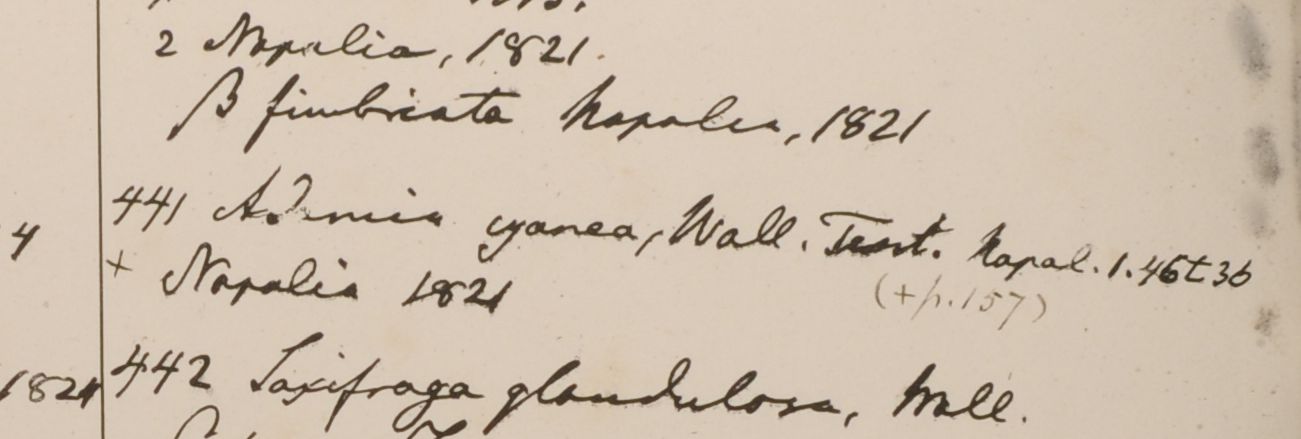 2 Napalia, 1821.
β fimbriata Napalia, 1821
441 Adamia cyanea, Wall. Tent. Napal. 1. 46 t 36
4 + Napalia 1821 (+ p. 157)
1821 442 Saxifraga glandulosa, Wall.